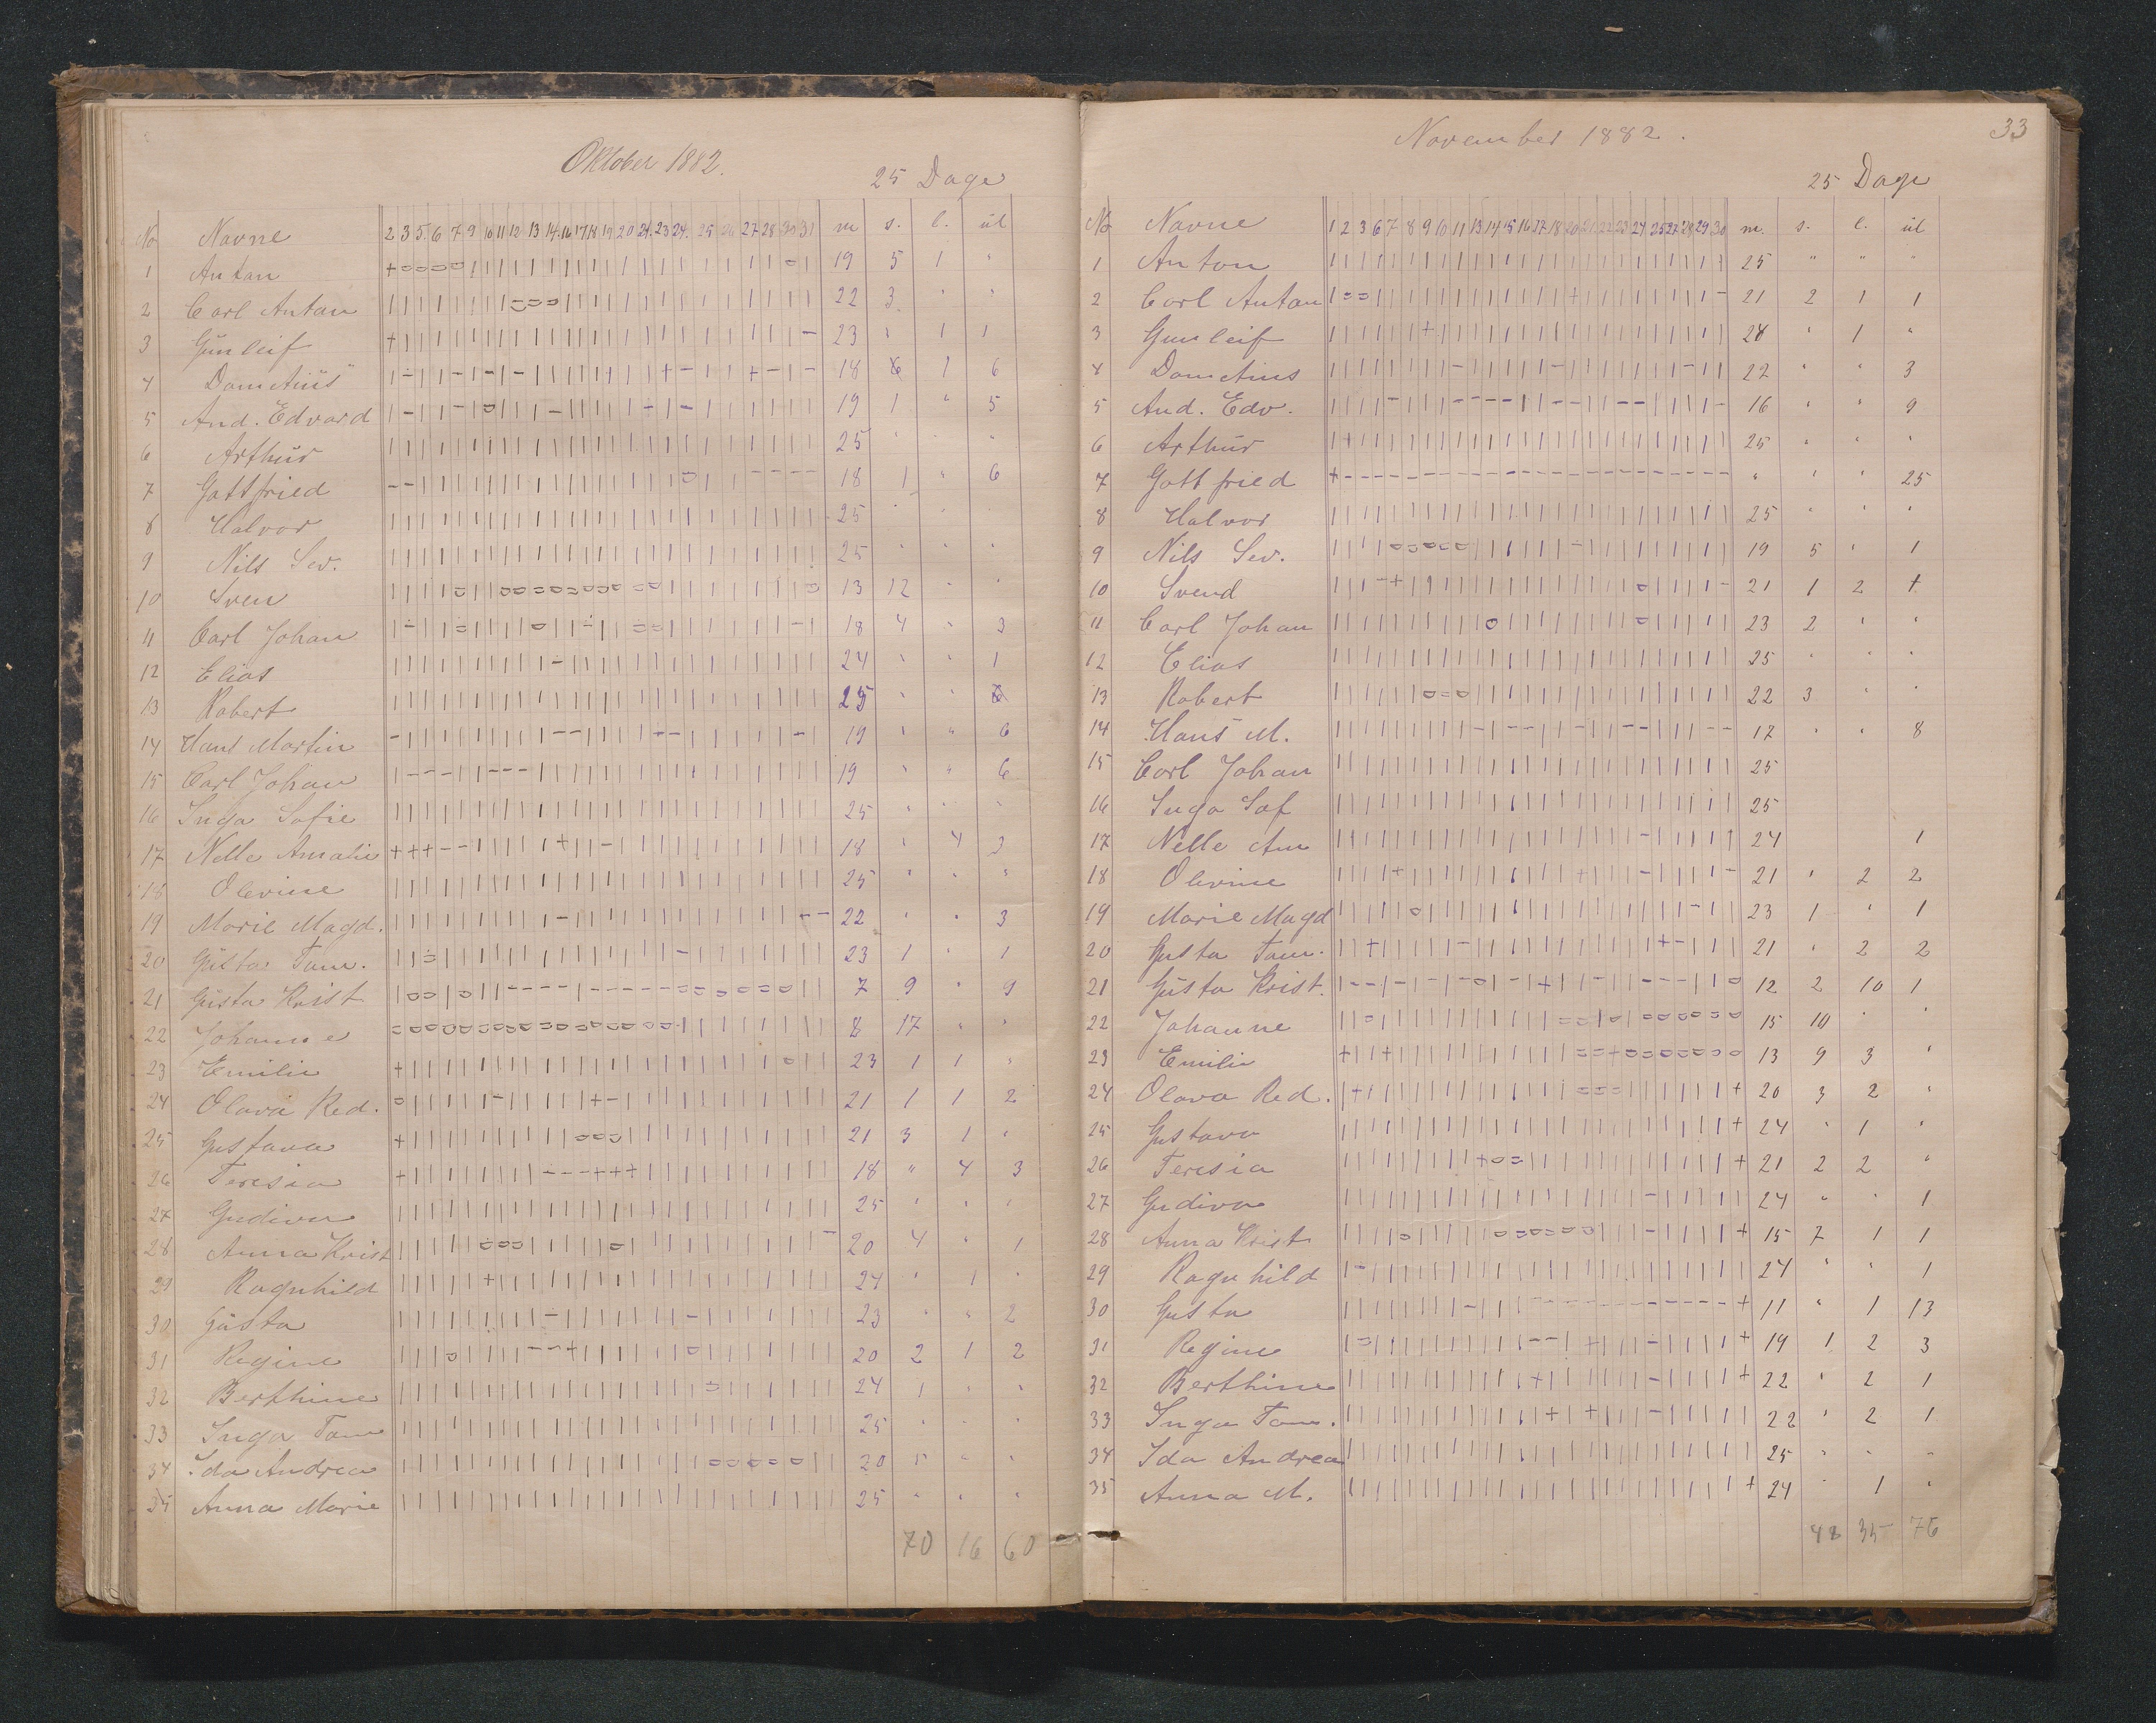 Oktober 1882.
25 Dage
No Navne 2 3 5 6 7 9 10 11 12 13 14 16 17 18 19 20 21 23 24 25 26 27 28 30 31 m s. l. ul
1 Anton 19 5 1 "
2 Carl Anton 22 3 " "
3 Gunleif 23 " 1 1
4 Dometius 18 1 6
5 And. Edvard 19 1 " 5
6 Arthur 25 " " "
7 Gottfried 18 1 " 6
8 Halvor 25 " "
9 Nils Sev. 25 " " "
10 Sven 13 12 " "
11 Carl Johan 18 4 " 3
12 Elias 24 " " 1
13 Robert 25 " "
14 Hans Martin 19 " " 6
15 Carl Johan 19 " " 6
16 Inga Sofie 25 " " "
17 Nelle Amalie 18 " 4 3
18 Olevine 25 " " "
19 Marie Magd. 22 " " 3
20 Gusta Tom. 23 1 " 1
21 Gusta Krist 7 9 " 9
22 Johanne 8 17 " "
23 Emilie 23 1 1 "
24 Olava Red. 21 1 1 2
25 Gustava 21 3 1 "
26 Teresia 18 " 4 3
27 Gudiva 25 " " "
28 Anna Krist 20 4 " 1
29 Ragnhild 24 " 1 "
30 Gusta 23 " " 2
31 Regine 20 2 1 2
32 Berthine 24 1 " "
33 Inga Tom 25 " " "
34 Ida Andrea 20 5 " "
35 Anna Marie 25 " " "
70 16 60
33
November 1882.
25 Dage
No Navne 1 2 3 6 7 8 9 10 11 13 14 15 16 17 18 20 21 22 23 24 25 27 28 29 30 m. s. l. ul
1 Anton 25 " " "
2 Carl Anton 21 2 1 1
3 Gunleif 24 " 1 "
4 Dometius 22 " " 3
5 And. Edv. 16 " " 9
6 Arthur 25 " " "
7 Gottfried " " " 25
8 Halvor 25 " " "
9 Nils Sev. 19 5 " 1
10 Svend 21 1 2 1
11 Carl Johan 23 2 " "
12 Elias 25 " " "
13 Robert 22 3 " "
14 Hans M. 17 " " 8
15 Carl Johan 25
16 Inga Sof 25
17 Nelle Am 24 1
18 Olevine 21 " 2 2
19 Marie Magd 23 1 " 1
20 Gusta Tom. 21 " 2 2
21 Gusta Krist. 12 2 10 1
22 Johanne 15 10 " "
23 Emilie 13 9 3 "
24 Olava Red. 20 3 2 "
25 Gustava 24 " 1 "
26 Teresia 21 2 2 "
27 Gudiva 24 " " 1
28 Anna Krist 15 7 1 1
29 Ragnhild 24 " " 1
30 Gusta 11 " 1 13
31 Regine 19 1 2 3
32 Berthine 22 " 2 1
33 Inga Tom. 22 " 2 1
34 Ida Andrea 25 " " "
35 Anna M. 24 " 1 "
48 35 76